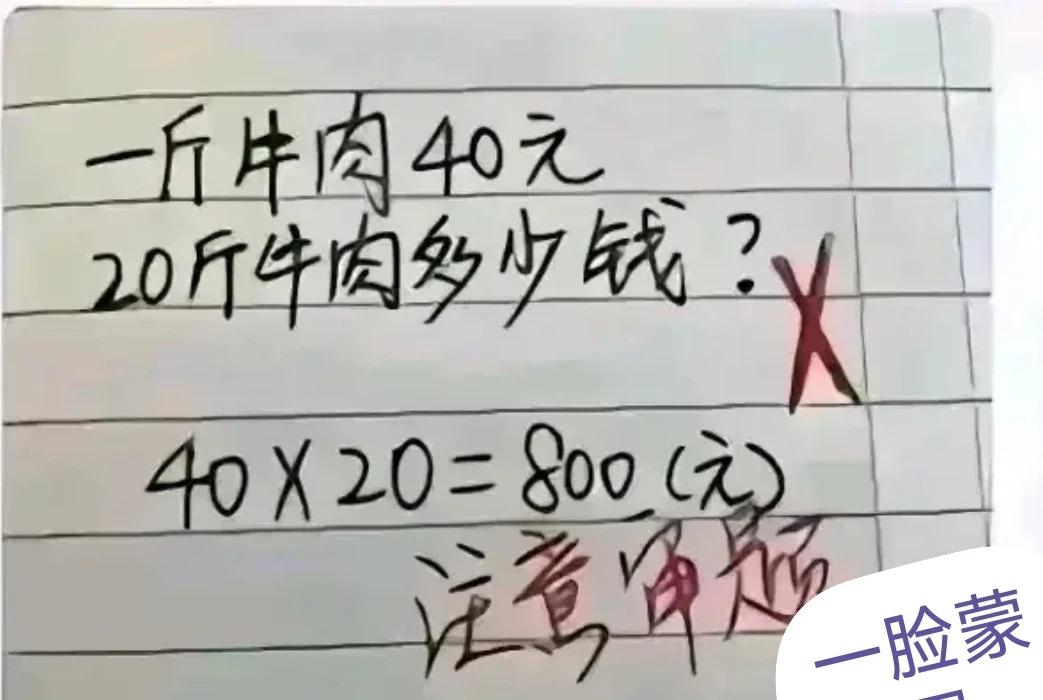 一斤牛肉40元
20斤牛肉多少钱？
X
40X20=800(元)
注意审题
一脸蒙